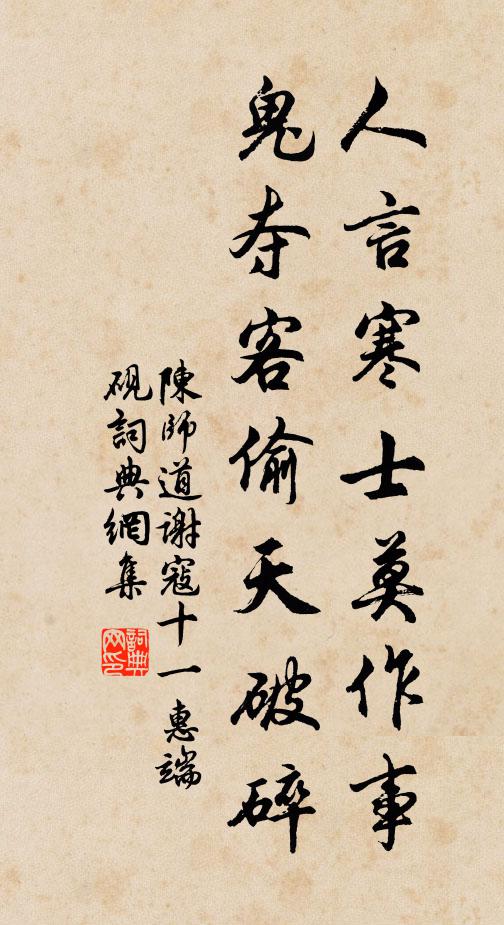 人言寒士莫作事
鬼夺客偷天破碎
陳師道謝寇十一惠端
砚詞典網集
詞典网印